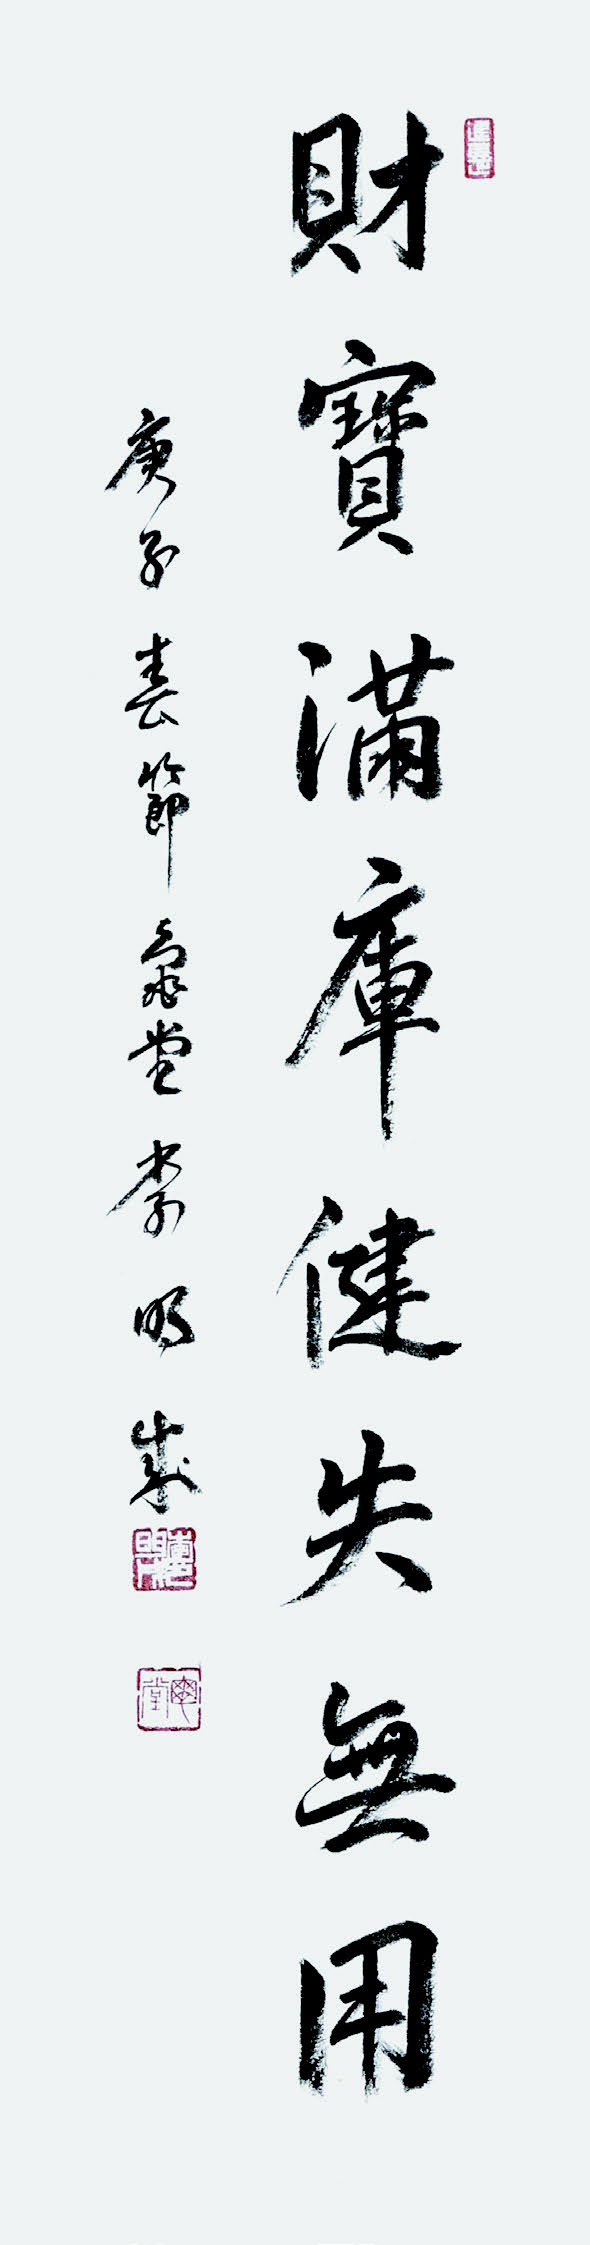 財寶滿庫健失無用
庚子春節 堂李明成